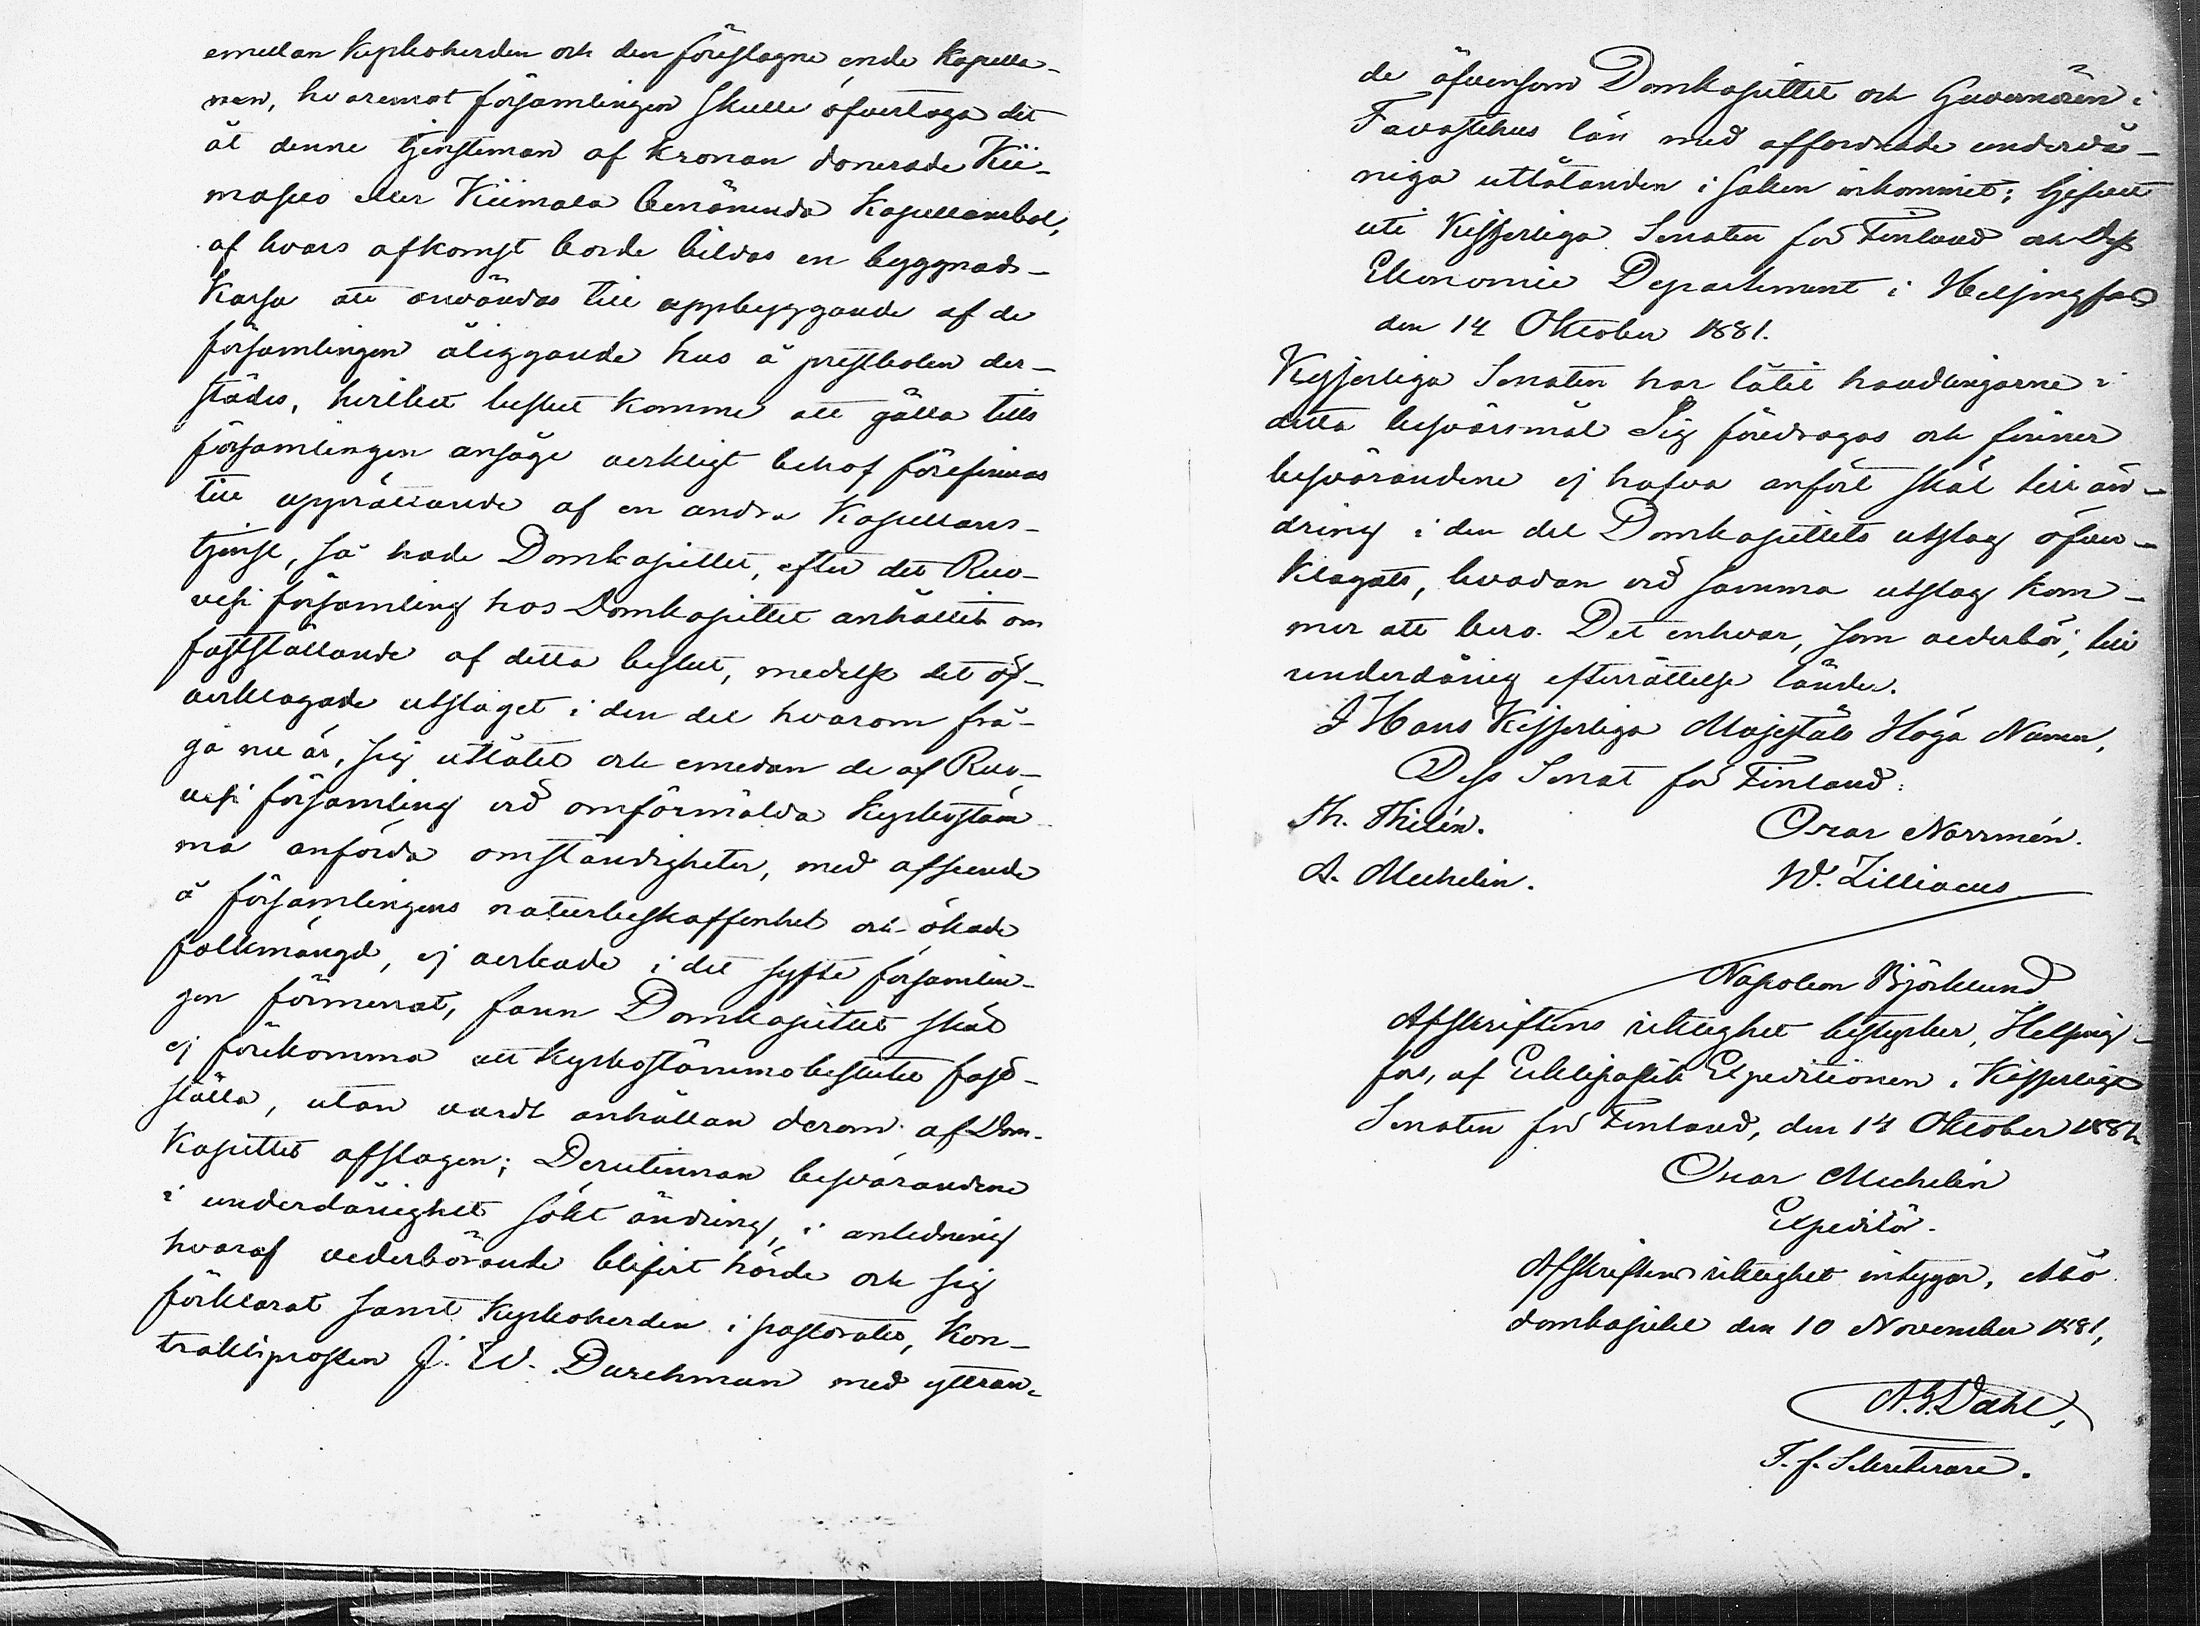 emellan Kyrkoherden och den föreslagne ende Kapella-
nen, hvaremot församlingen skulle öfvertaga det
åt denne tjensteman af Kronan donerade Kii-
masuo eller Kiimala benämnda Kapellansbol,
af hvars afkomst borde bildas en byggnads-
Kassa att användas till uppbyggande af de
församlingen åliggande hus å prestbolen der-
städes, hvilket beslut komme att gälla tills
församlingen ansåge verkligt behof förefinnas
till upprättande af en andra Kapellans-
tjenst, så hade Domkapitlet, efter det Ruo-
vesi församling hos Domkapitlet anhållit om
fastställande af detta beslut, medelst det öf-
verklagade utslaget i den del hvarom frå-
ga nu är, sig utlåtit och emedan de af Ruo-
vesi församling vid omförmälda Kyrkostäm
ma anförda omständigheter, med afseende
å församlingens naturbeskaffenhet och ökade
folkmängd, ej verkade i det syfte församlin-
gen förmenat, fann Domkapitlet skäl
ej förekomma att Kyrkostämmobeslutet fast-
ställa, utan vardt anhållan derom af Dom-
Kapitlet afslagen; Derutinnan besvärandene
i underdånighet sökt ändring, i anledning
hvaraf vederbörande blifvit hörde och sig
förklarat samt Kyrkoherden i pastoratet, Kon-
traktsprosten J. W. Durchman med yttran-
de äfvensom Domkapitlet och Guvernören i
Tavastehus län med affordrade underdå-
niga utlåtanden i saken inkommit; Gifvet
uti Kejserliga Senaten för Finland och Dess
Ekonomie Departement i Helsingfors
den 14 Oktober 1881.
Kejserliga Senaten har låtit handlingarne i
detta besvärsmål Sig föredragas och finner
besvärandene ej hafva anfört skäl till än-
dring i den del Domkapitlets utslag öfver-
klagats, hvadan vid samma utslag kom-
mer att bero. Det enhvar, som vederbör, till
underdånig efterrättelse länder.
I Hans Kejserliga Majestäts Höga Namn,
Dess Senat för Finland:
Th. Thilén. Oscar Norrmén.
A. Mechelin. W. Zilliacus
Napoleon Björklund
Afskriftens riktighet bestyrker, Helsing-
fors, af Ecklesiastik Expeditionen i Kejserliga
Senaten för Finland, den 14 Oktober 1881.
Oscar Mechelin
Expeditör.
Afskriftens riktighet intygar, Åbo
domkapitel den 10 November 1881,
A. G. Dahl,
T. f. Sekreterare.